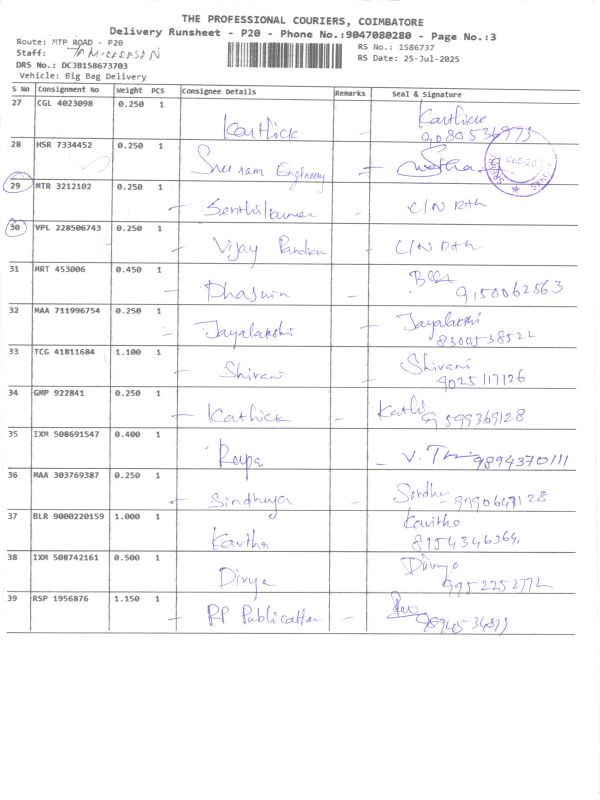 THE PROFESSIONAL COURIERS, COIMBATORE
Delivery Runsheet - P20 - Phone No.:9047080280 - Page No.:3
Route: MTP ROAD - P20
RS No.: 1586737
Staff:
RS Date: 25-Jul-2025
DRS No.: DCJB158673703
Vehicle: Big Bag Delivery
S No Consignment No Weight PCS Consignee Details Remarks Seal & Signature
27 CGL 4023098 0.250 1 Karthick - Karthick
9080553
28 HSR 7334452 0.250 1 Sree ram Engineering -
29 MTR 3212102 0.250 1 - Senthilkumar C/N Rth
30 VPL 228506743 0.250 1 - Vijay Pandian - C/N Rth
31 MRT 453006 0.450 1 - Dhaswin -
9150062563
32 MAA 711996754 0.250 1 - Jayalakshi - Jayalakshi
8300538522
33 TCG 41811684 1.100 1 - Shivani - Shivani
9025117126
34 GMP 922841 0.250 1 - Kathick - Kathi 9599369128
35 IXM 508691547 0.400 1 Roupa - V. 9894370111
36 MAA 303769387 0.250 1 - Sindhuya - 9790647128
37 BLR 9000220159 1.000 1 Kavtha Kavitha
8154346364
38 IXM 508742161 0.500 1 Divya Divya
9952252772
39 RSP 1956876 1.150 1 - RP Publication -